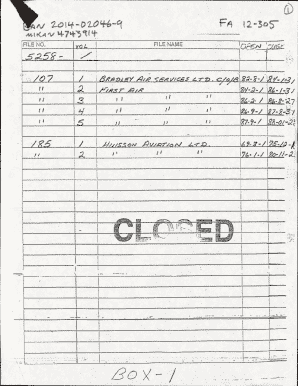 1
BAN 2014-02046-9 FA 12-305
MIKAN 4743914
FILE NO. VOL FILE NAME OPEN CLOSE
5258- /
107 1 BRADLEY AIR SERVICES LTD. C/O/B 82-8-1 84-1-31
" 2 FIRST AIR 84-2-1 86-1-31
" 3 " " " 86-2-1 86-8-27
" 4 " " " 86-9-1 87-8-31
" 5 " " " 87-9-1 88-01-21
185 1 HUISSON AVIATION LTD. 69-8-1 75-12-
" 2 " " " 76-1-1 80-11-2
CLOSED
BOX-1